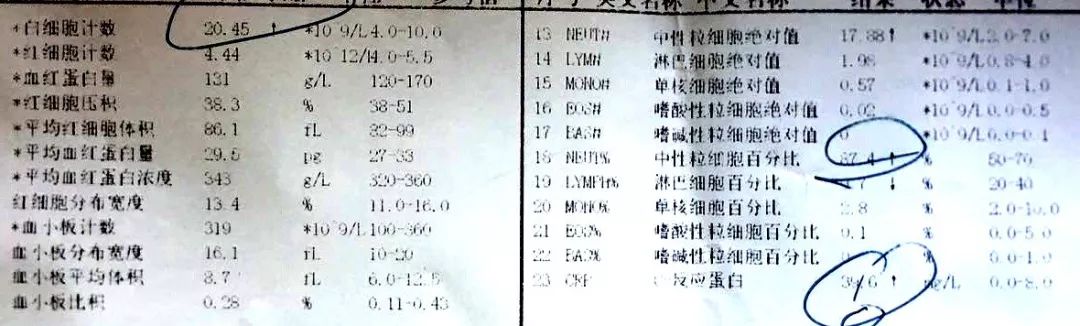 *白细胞计数 20.45 ↑ *10^9/L 4.0-10.0
*红细胞计数 4.44 *10^12/L 4.0-5.5
*血红蛋白量 131 g/L 120-170
*红细胞压积 38.3 % 38-51
*平均红细胞体积 86.1 fL 82-99
*平均血红蛋白量 29.5 pg 27-33
*平均血红蛋白浓度 343 g/L 320-360
红细胞分布宽度 13.4 % 11.0-16.0
*血小板计数 319 *10^9/L 100-360
血小板分布宽度 16.1 fL 10-20
血小板平均体积 8.7 fL 6.0-12.5
血小板比积 0.28 % 0.11-0.43
13 NEUT# 中性粒细胞绝对值 17.88↑ *10^9/L 2.0-7.0
14 LYM# 淋巴细胞绝对值 1.98 *10^9/L 0.8-4.0
15 MONO# 单核细胞绝对值 0.57 *10^9/L 0.1-1.0
16 EOS# 嗜酸性粒细胞绝对值 0.02 *10^9/L 0.0-0.5
17 BAS# 嗜碱性粒细胞绝对值 *10^9/L 0.0-0.1
18 NEUT% 中性粒细胞百分比 87.4 ↑ % 50-70
19 LYMPH% 淋巴细胞百分比 ↓ % 20-40
20 MONO% 单核细胞百分比 2.8 % 2.0-10.0
21 EOS% 嗜酸性粒细胞百分比 0.1 % 0.0-5.0
22 BAS% 嗜碱性粒细胞百分比 % 0.0-1.0
23 CRP 反应蛋白 ↑ mg/L 0.0-8.0